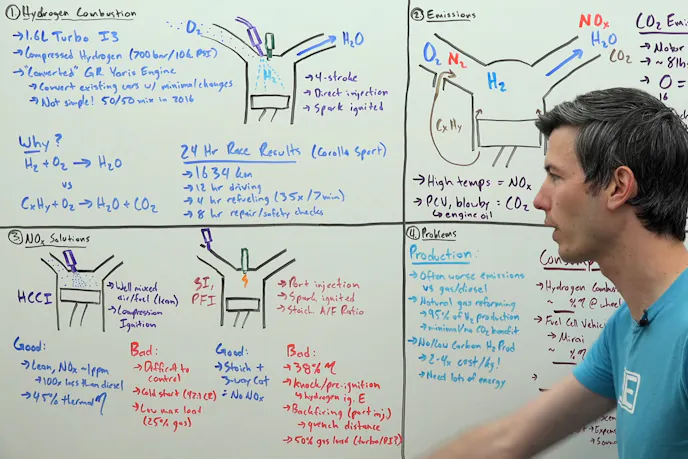 ① Hydrogen Combustion
→ 1.6L Turbo I3
→ Compressed Hydrogen (700 bar/10k PSI)
→ "Converted" GR Yaris Engine
→ Convert existing cars w/ minimal changes
→ Not simple! 50/50 mix in 2016
O₂
H₂
H₂O
→ 4-stroke
→ Direct injection
→ Spark ignited
Why?
H₂ + O₂ → H₂O
vs
CxHy + O₂ → H₂O + CO₂
24 Hr Race Results (Corolla Sport)
→ 1634 km
→ 12 hr driving
→ 4 hr refueling (35x/7min)
→ 8 hr repair/safety checks
② Emissions
O₂
N₂
H₂
NOx
H₂O
CO₂
CxHy
→ High temps = NOx
→ PCV, blowby = CO₂
↳ engine oil
CO₂
→ Motor
→ ~ 8 lb
→ O =
16
③ NOx Solutions
HCCI
→ Well mixed
air/fuel (lean)
→ Compression
Ignition
SI,
PFI
→ Port injection
→ Spark ignited
→ Stoich A/F Ratio
Good:
→ Lean, NOx ~1ppm
→ 100x less than diesel
→ 45% thermal η
Bad:
→ Difficult to
control
→ Cold start (42:1 CR)
→ Low max load
(25% gas)
Good:
→ Stoich +
3-way Cat
∴ No NOx
Bad:
→ 38% η
→ Knock/pre-ignition
↳ hydrogen ig. E
→ Backfiring (port inj.)
↳ quench distance
→ 50% gas load (turbo/PI?)
④ Problems
Production:
→ Often worse emissions
vs gas/diesel
→ Natural gas reforming
→ 95% of H₂ production
→ minimal/no CO₂ benefit
→ No/low Carbon H₂ Prod
→ 2-4x cost/kg!
→ Need lots of energy
→ Hydrogen Combus
→ ~ % η @ wheel
→ Fuel Cell Vehicl
→ Mirai
→ ~ % η
E